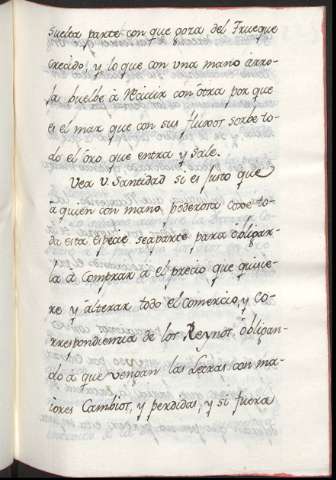 suelta parte con que goza del Trueque
Crecido, y lo que con una mano arro-
ja buelbe à Récivir con otra por que
es el mar que con sus flúxos sorbe to-
do el oro que entra y sale.
Vea V. Santidad si es justo que
a quién con mano poderosa coxe to-
da esta especie se aparte para obligar-
la à Comprar à el precio que quisie-
re y álterar todo el comercio, y Co-
rrespondiencia de los Reynos obligan-
do à que vengan las Letras con ma-
iores Cambios, y perdidas, y si fuera